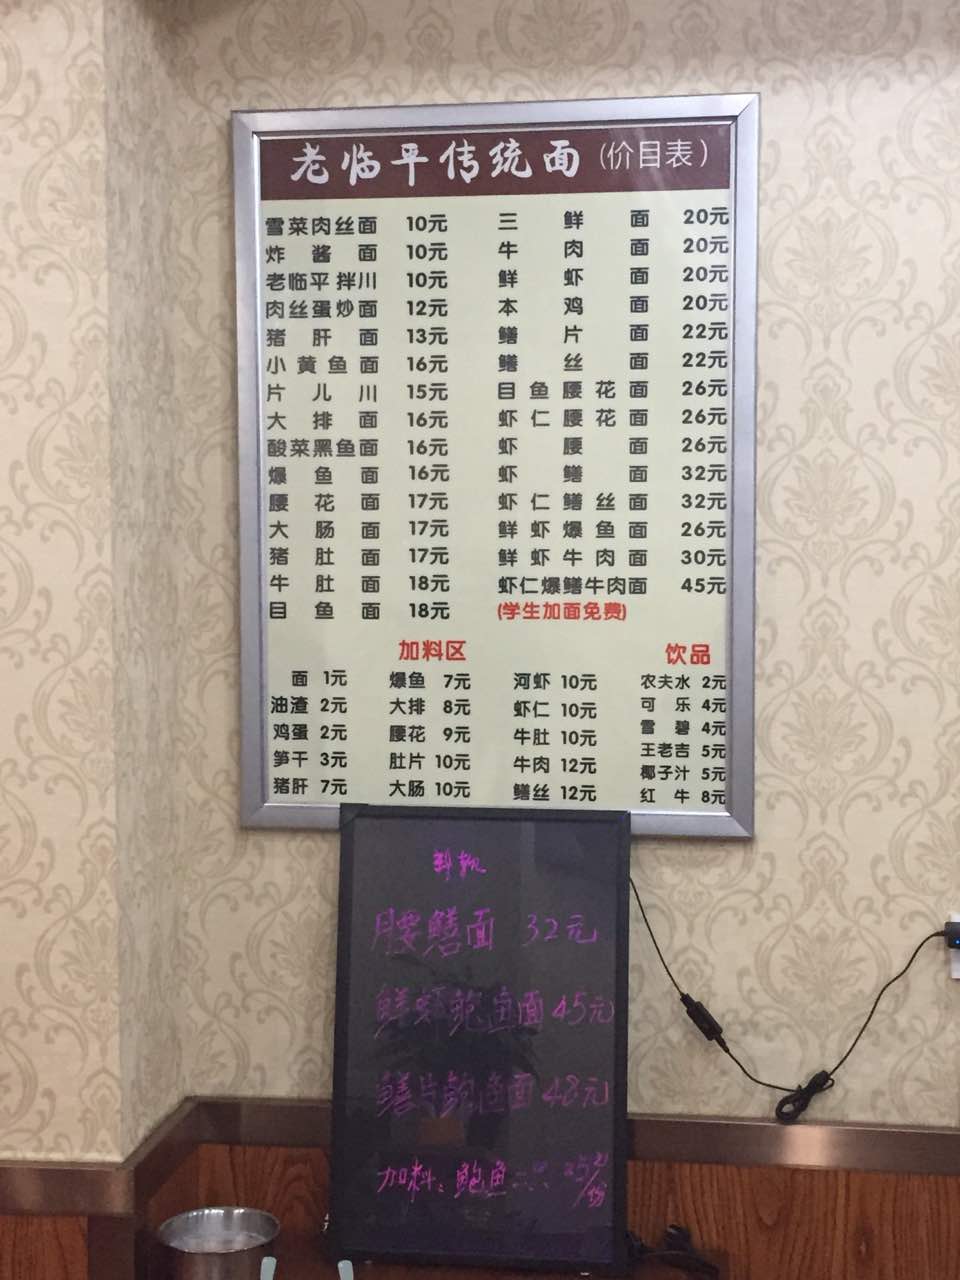 老临平传统面(价目表)
雪菜肉丝面 10元
炸酱面 10元
老临平拌川 10元
肉丝蛋炒面 12元
猪肝面 13元
小黄鱼面 16元
片儿川 15元
大排面 16元
酸菜黑鱼面 16元
爆鱼面 16元
腰花面 17元
大肠面 17元
猪肚面 17元
牛肚面 18元
目鱼面 18元
三鲜面 20元
牛肉面 20元
鲜虾面 20元
本鸡面 20元
鳝片面 22元
鳝丝面 22元
目鱼腰花面 26元
虾仁腰花面 26元
虾腰面 26元
虾鳝面 32元
虾仁鳝丝面 32元
鲜虾爆鱼面 26元
鲜虾牛肉面 30元
虾仁爆鳝牛肉面 45元
(学生加面免费)
加料区
面 1元
油渣 2元
鸡蛋 2元
笋干 3元
猪肝 7元
爆鱼 7元
大排 8元
腰花 9元
肚片 10元
大肠 10元
河虾 10元
虾仁 10元
牛肚 10元
牛肉 12元
鳝丝 12元
饮品
农夫水 2元
可乐 4元
雪碧 4元
王老吉 5元
椰子汁 5元
红牛 8元
腰鳝面 32元
鲜虾鲍鱼面 45元
鳝片鲍鱼面 48元
加料:鲍鱼